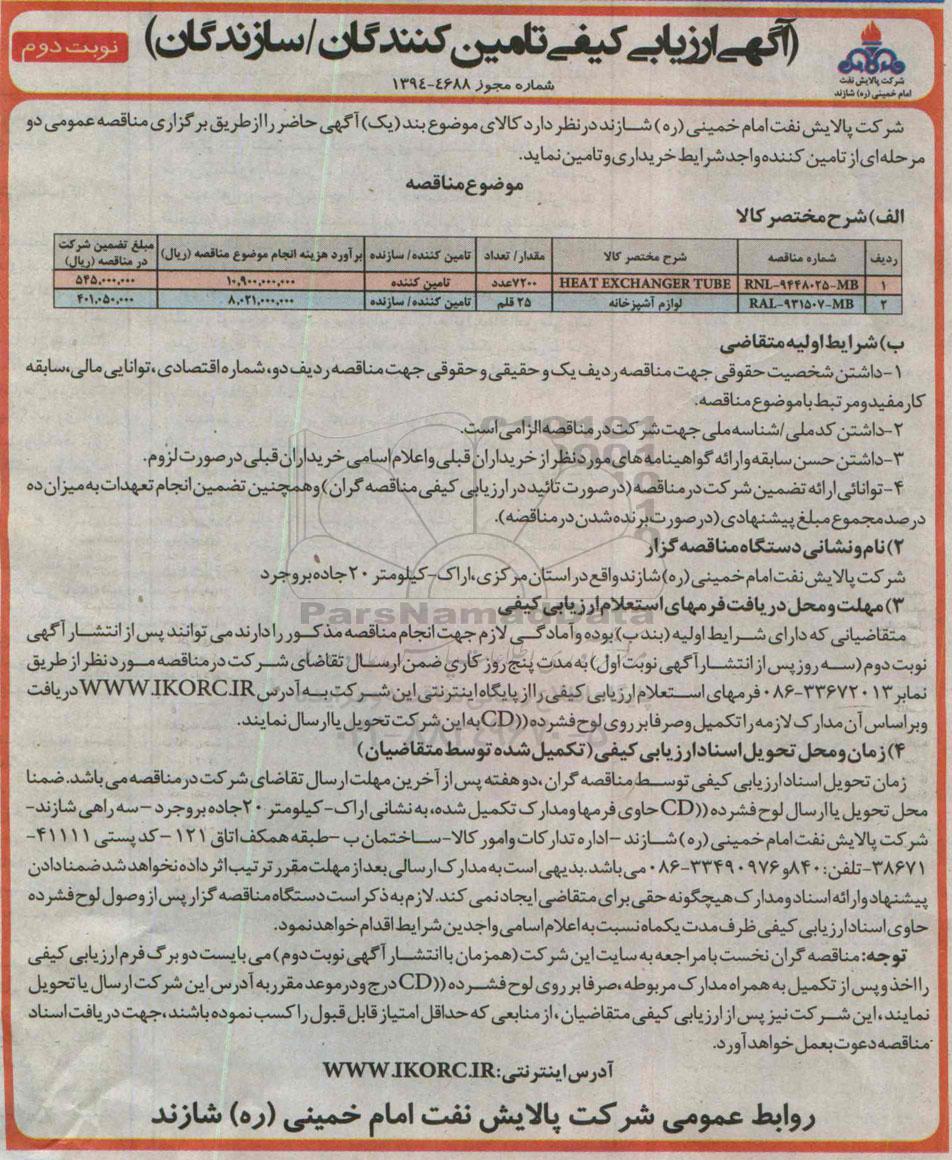 (آگهی ارزیابی کیفی تامین کنندگان/سازندگان)
نوبت دوم
شرکت پالایش نفت
امام خمینی (ره) شازند
شماره مجوز ۴۶۸۸-۱۳۹۴
شرکت پالایش نفت امام خمینی (ره) شازند در نظر دارد کالای موضوع بند (یک) آگهی حاضر را از طریق برگزاری مناقصه عمومی دو
مرحله‌ای از تامین کننده واجد شرایط خریداری و تامین نماید.
موضوع مناقصه
الف) شرح مختصر کالا
ردیف شماره مناقصه شرح مختصر کالا مقدار/ تعداد تامین کننده/ سازنده برآورد هزینه انجام موضوع مناقصه (ریال) مبلغ تضمین شرکت در مناقصه (ریال)
۱ RNL-۹۴۴۸۰۲۵-MB HEAT EXCHANGER TUBE ۷۲۰۰عدد تامین کننده ۱۰,۹۰۰,۰۰۰,۰۰۰ ۵۴۵,۰۰۰,۰۰۰
۲ RAL-۹۳۱۵۰۷-MB لوازم آشپزخانه ۲۵ قلم تامین کننده/ سازنده ۸,۰۲۱,۰۰۰,۰۰۰ ۴۰۱,۰۵۰,۰۰۰
ب) شرایط اولیه متقاضی
۱-داشتن شخصیت حقوقی جهت مناقصه ردیف یک و حقیقی و حقوقی جهت مناقصه ردیف دو، شماره اقتصادی، توانایی مالی، سابقه
کار مفید و مرتبط با موضوع مناقصه.
۲-داشتن کد ملی/شناسه ملی جهت شرکت در مناقصه الزامی است.
۳-داشتن حسن سابقه و ارائه گواهینامه های مورد نظر از خریداران قبلی و اعلام اسامی خریداران قبلی در صورت لزوم.
۴-توانائی ارائه تضمین شرکت در مناقصه (در صورت تائید در ارزیابی کیفی مناقصه گران) و همچنین تضمین انجام تعهدات به میزان ده
درصد مجموع مبلغ پیشنهادی (در صورت برنده شدن در مناقصه).
۲) نام و نشانی دستگاه مناقصه گزار
شرکت پالایش نفت امام خمینی (ره) شازند واقع در استان مرکزی، اراک-کیلومتر ۲۰ جاده بروجرد
۳) مهلت و محل دریافت فرمهای استعلام ارزیابی کیفی
متقاضیانی که دارای شرایط اولیه (بند ب) بوده و آمادگی لازم جهت انجام مناقصه مذکور را دارند می توانند پس از انتشار آگهی
نوبت دوم (سه روز پس از انتشار آگهی نوبت اول) به مدت پنج روز کاری ضمن ارسال تقاضای شرکت در مناقصه مورد نظر از طریق
نمابر ۳۳۶۷۲۰۱۳-۰۸۶ فرمهای استعلام ارزیابی کیفی را از پایگاه اینترنتی این شرکت به آدرس WWW.IKORC.IR دریافت
و بر اساس آن مدارک لازمه را تکمیل و صرفا بر روی لوح فشرده ((CD به این شرکت تحویل یا ارسال نمایند.
۴) زمان و محل تحویل اسناد ارزیابی کیفی (تکمیل شده توسط متقاضیان)
زمان تحویل اسناد ارزیابی کیفی توسط مناقصه گران، دو هفته پس از آخرین مهلت ارسال تقاضای شرکت در مناقصه می باشد. ضمنا
محل تحویل یا ارسال لوح فشرده ((CD حاوی فرمها و مدارک تکمیل شده، به نشانی اراک-کیلومتر ۲۰ جاده بروجرد-سه راهی شازند-
شرکت پالایش نفت امام خمینی (ره) شازند-اداره تدارکات و امور کالا-ساختمان ب-طبقه همکف اتاق ۱۲۱-کد پستی ۴۱۱۱۱-
۳۸۶۷۱-تلفن: ۸۴۰ و ۳۳۴۹۰۹۷۶-۰۸۶ می باشد. بدیهی است به مدارک ارسالی بعد از مهلت مقرر ترتیب اثر داده نخواهد شد ضمنا دادن
پیشنهاد و ارائه اسناد و مدارک هیچگونه حقی برای متقاضی ایجاد نمی کند. لازم به ذکر است دستگاه مناقصه گزار پس از وصول لوح فشرده
حاوی اسناد ارزیابی کیفی ظرف مدت یکماه نسبت به اعلام اسامی واجدین شرایط اقدام خواهد نمود.
توجه: مناقصه گران نخست با مراجعه به سایت این شرکت (همزمان با انتشار آگهی نوبت دوم) می بایست دو برگ فرم ارزیابی کیفی
را اخذ و پس از تکمیل به همراه مدارک مربوطه، صرفا بر روی لوح فشرده ((CD درج و در موعد مقرر به آدرس این شرکت ارسال یا تحویل
نمایند، این شرکت نیز پس از ارزیابی کیفی متقاضیان، از منابعی که حداقل امتیاز قابل قبول را کسب نموده باشند، جهت دریافت اسناد
مناقصه دعوت بعمل خواهد آورد.
آدرس اینترنتی: WWW.IKORC.IR
روابط عمومی شرکت پالایش نفت امام خمینی (ره) شازند
ParsNamadData